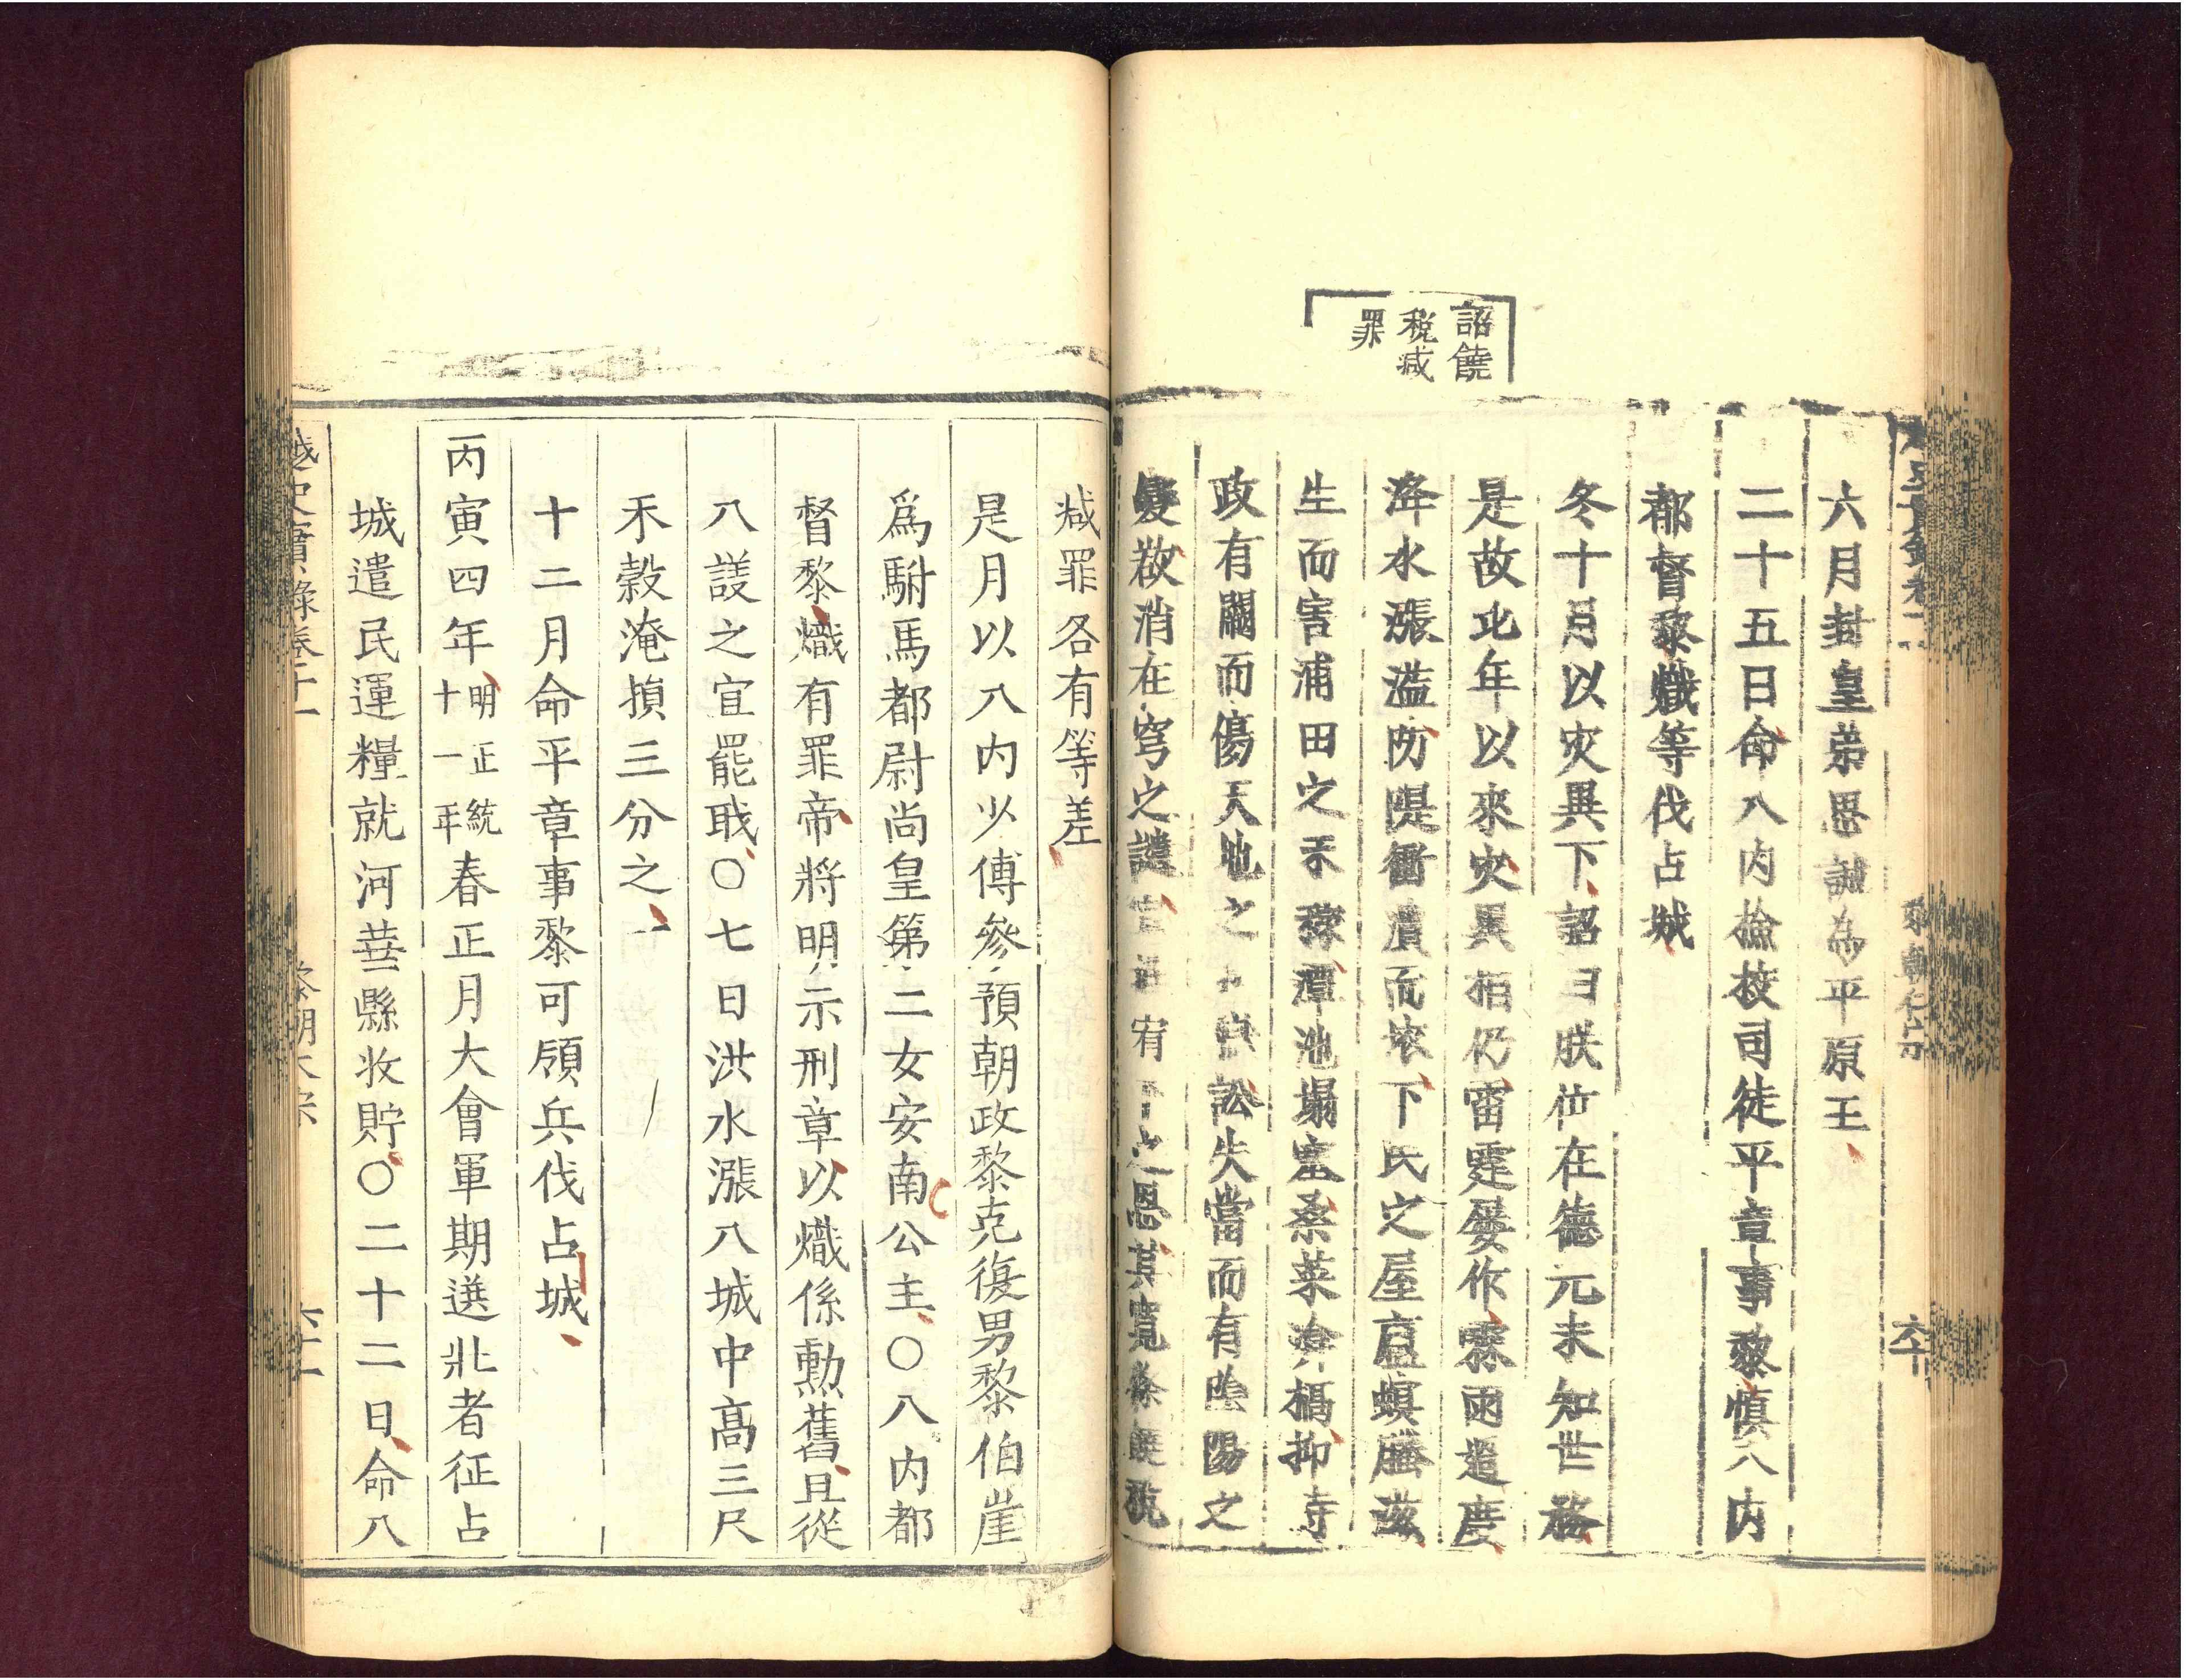 詔饒
税減
罪
六月封皇弟思誠為平原王
二十五日命入内撿校司徒平章事黎慎入内
都督黎熾等伐占城
冬十月以灾異下詔曰朕位在德元未知世務
是故比年以來灾異相仍雷霆屡作霖雨過度
洚水漲滥防隄衝潰而壞下民之屋廬螟螣滋
生而害浦田之禾稼潭池塌塞桑菜渰抑寺
政有闕而傷天地之訟失當而有陰陽之
變欲消在穹之譴宜宥之恩其寬條饒税
越史實録卷十一
六十一
减罪各有等差
是月以入内少傅參預朝政黎克復男黎伯崖
爲駙馬都尉尚皇第二女安南公主○入内都
督黎熾有罪帝將明示刑章以熾係勲舊且從
八議之宜罷職○七日洪水漲入城中高三尺
禾穀淹損三分之一
十二月命平章事黎可領兵伐占城
丙寅四年明正統十一年春正月大會軍期選壮者征占
城遣民運糧就河華縣收貯○二十二日命入